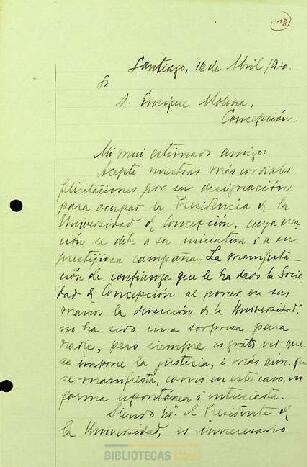 Santiago, 12 de Abril/920.
Sr
D. Enrique Molina,
Concepción.
Mi mui estimado amigo:
Acepte nuestras mas cordiales
felicitaciones por su designación
para ocupar la Presidencia de la
Universidad de Concepción, cuya crea-
ción se debe a su iniciativa i a su
prestijiosa campaña. La manifesta-
ción de confianza que le ha dado la socie-
dad de Concepción al poner en sus
manos la dirección de la Universidad,
no ha sido una sorpresa para
nadie, pero siempre es grato ver que
se impone la justicia, i más aun que
se manifiesta, como en este caso, en
forma espontánea i
Siendo Ud. el Presidente de
la Universidad, es innecesario
BIBLIOTECAS.COM